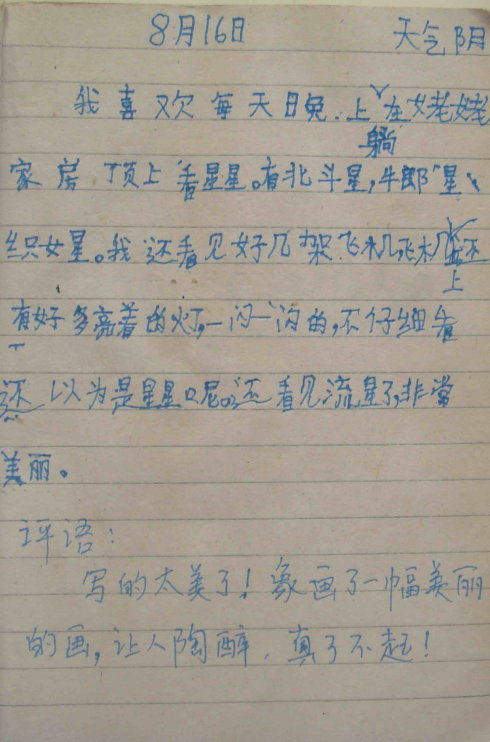 8月16日 天气阴
我喜欢每天日晚上躺在姥姥
家房顶上看星星。有北斗星,牛郎星、
织女星。我还看见好几架飞机飞机上还
有好多亮着的灯,一闪一闪的,不仔细看
还以为是星星呢。还看见流星了,非常
美丽。
评语:
写的太美了!象画了一幅美丽
的画,让人陶醉,真了不起!